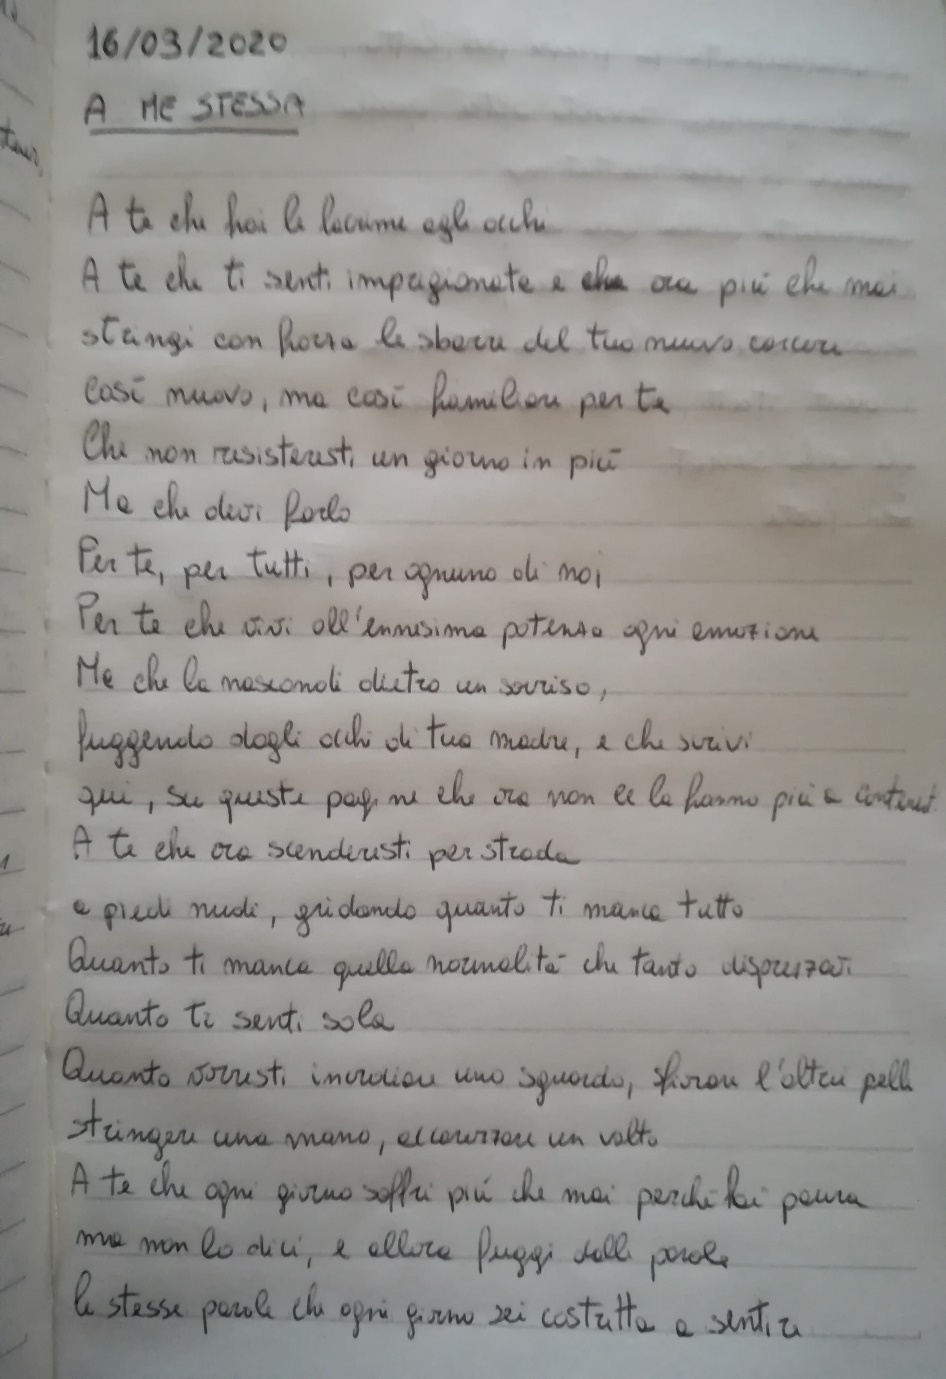 16/03/2020
A ME STESSA
A te che hai le lacrime agli occhi
A te che ti senti imprigionata e che ora più che mai
stringi con forza le sbarre del tuo nuovo carcere
Così nuovo, ma così familiare per te
Che non resisteresti un giorno in più
Ma che devi farlo
Per te, per tutti, per ognuno di noi
Per te che vivi all'ennesima potenza ogni emozione
Ma che la nascondi dietro un sorriso,
fuggendo dagli occhi di tua madre, e che scrivi
qui, su queste pagine che ora non ce la fanno più a
A te che ora scenderesti per strada
a piedi nudi, gridando quanto ti manca tutto
Quanto ti manca quella normalità che tanto disprezzavi
Quanto ti senti sola
Quanto vorresti incrociare uno sguardo, sfiorare l'altrui pelle
stringere una mano, accarezzare un volto
A te che ogni giorno soffri più che mai perché hai paura
ma non lo dici, e allora fuggi dalle parole
le stesse parole che ogni giorno sei costretta a sentire